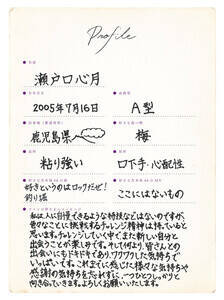 Profile
瀬戸口心月
2005年7月16日
A型
鹿児島県
梅
粘り強い
口下手・心配性
好きというのはロックだぜ!
釣り場
ここにはないもの
私は人に自慢できるような特技などはないのですが、
昔からことに挑戦するチャレンジ精神は持っていると
思います。チャレンジしていく中でまた新しい自分と
出会うことが楽しみです。そして何より、皆さんとの
出会いにもドキドキあり、ワクワクした気持ちで
いっぱいです。これまでに感じた様々な気持ちや
感謝の気持ちを忘れずに、一つひとつしっかりと
向き合っていきます。よろしくお願いいたします。